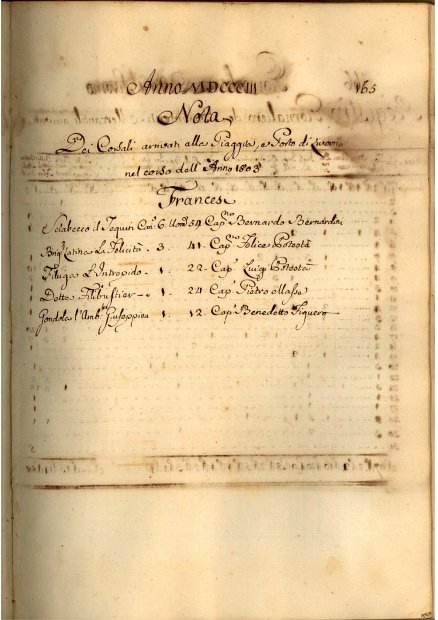 Anno MDCCCIII 165
Nota
Dei Corsali arrivati alla Piaggia, e Porto di Livorno
nel corso dell'Anno 1803
Francesi
Sciabecco il Can. 6. Uom. 54. Cap.no Bernardo Bernarda
Brig. Latina La Felicità 3. 41. Cap.no Felice
Filuga L'Intrepido 1. 22. Cap.o Luigi
Detta Filibustier 1. 24. Cap.o Pietro Massa
Gondola l'Amb. 1. 12. Cap.o Benedetto Figuero